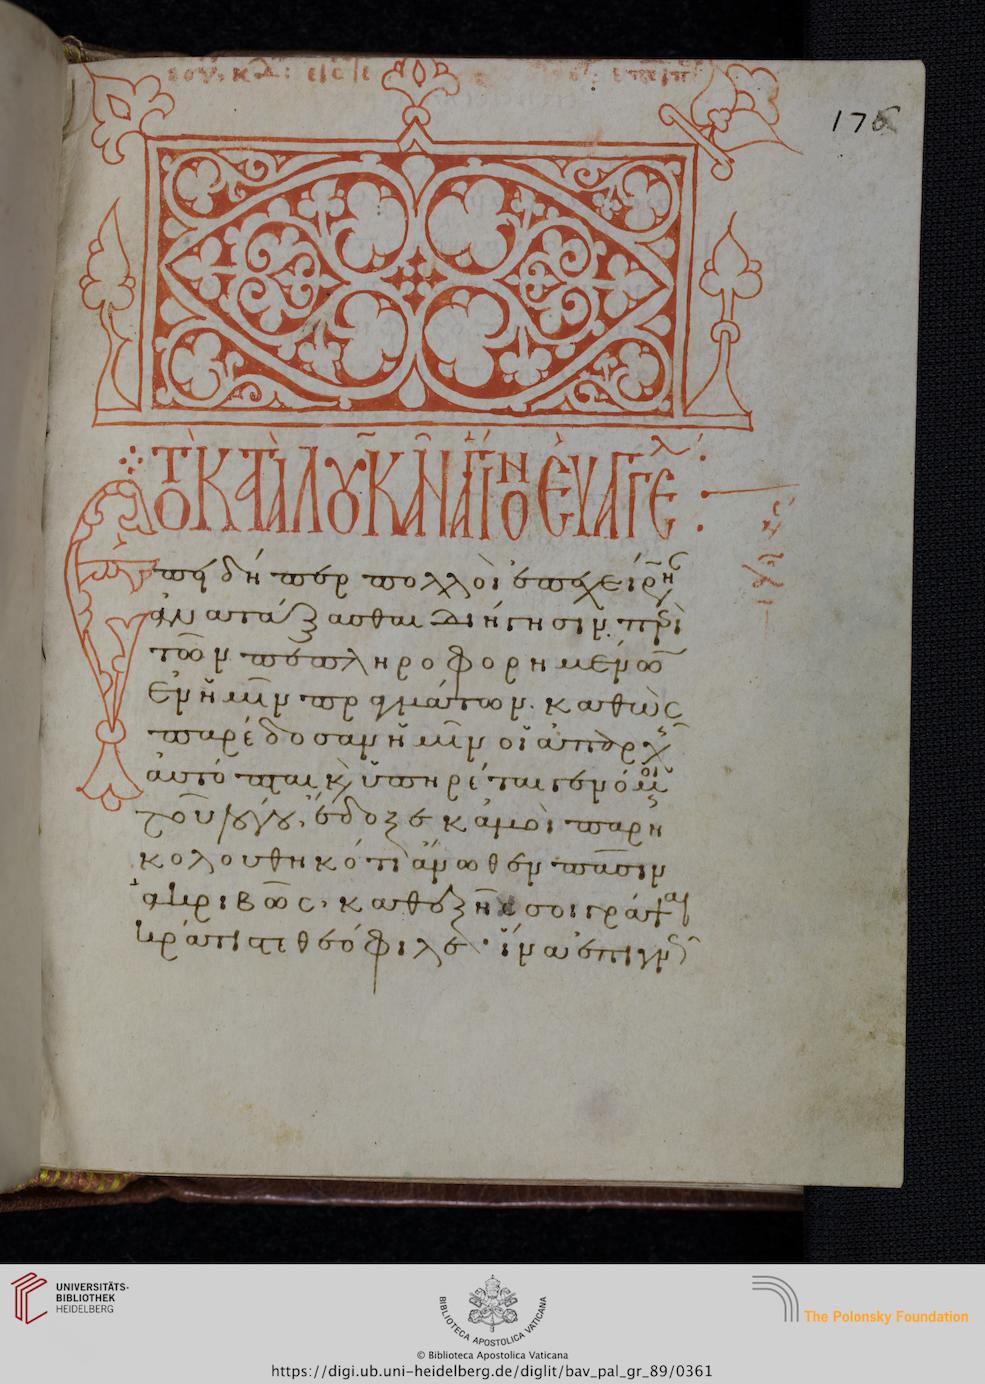 176
ΤὸΚΑΤᾺΛΟΥΚΑ͂ΝἍΓΙΟΝΕΥΑΓΓΕΛ
Ἐπειδήπερ πολλοὶ ἐπεχείρησ
ἀνατάξασθαι διήγησιν περὶ
τῶν πεπληροφορημένων
ἐν ἡμῖν πραγμάτων. καθὼς
παρέδοσαν ἡμῖν οἱ ἀπ' ἀρχῆς
αὐτόπται κ ὑπηρέται γενόμενοι
τοῦ λόγου, ἔδοξε κἀμοὶ παρη
κολουθηκότι ἄνωθεν πᾶσιν
ἀκριβῶς, καθεξῆς σοι γράψαι
κράτιστε θεόφιλε· ἵνα ἐπιγνῷς
UNIVERSITÄTS-
BIBLIOTHEK
HEIDELBERG
BIBLIOTECA APOSTOLICA VATICANA
The Polonsky Foundation
© Biblioteca Apostolica Vaticana
https://digi.ub.uni-heidelberg.de/diglit/bav_pal_gr_89/0361